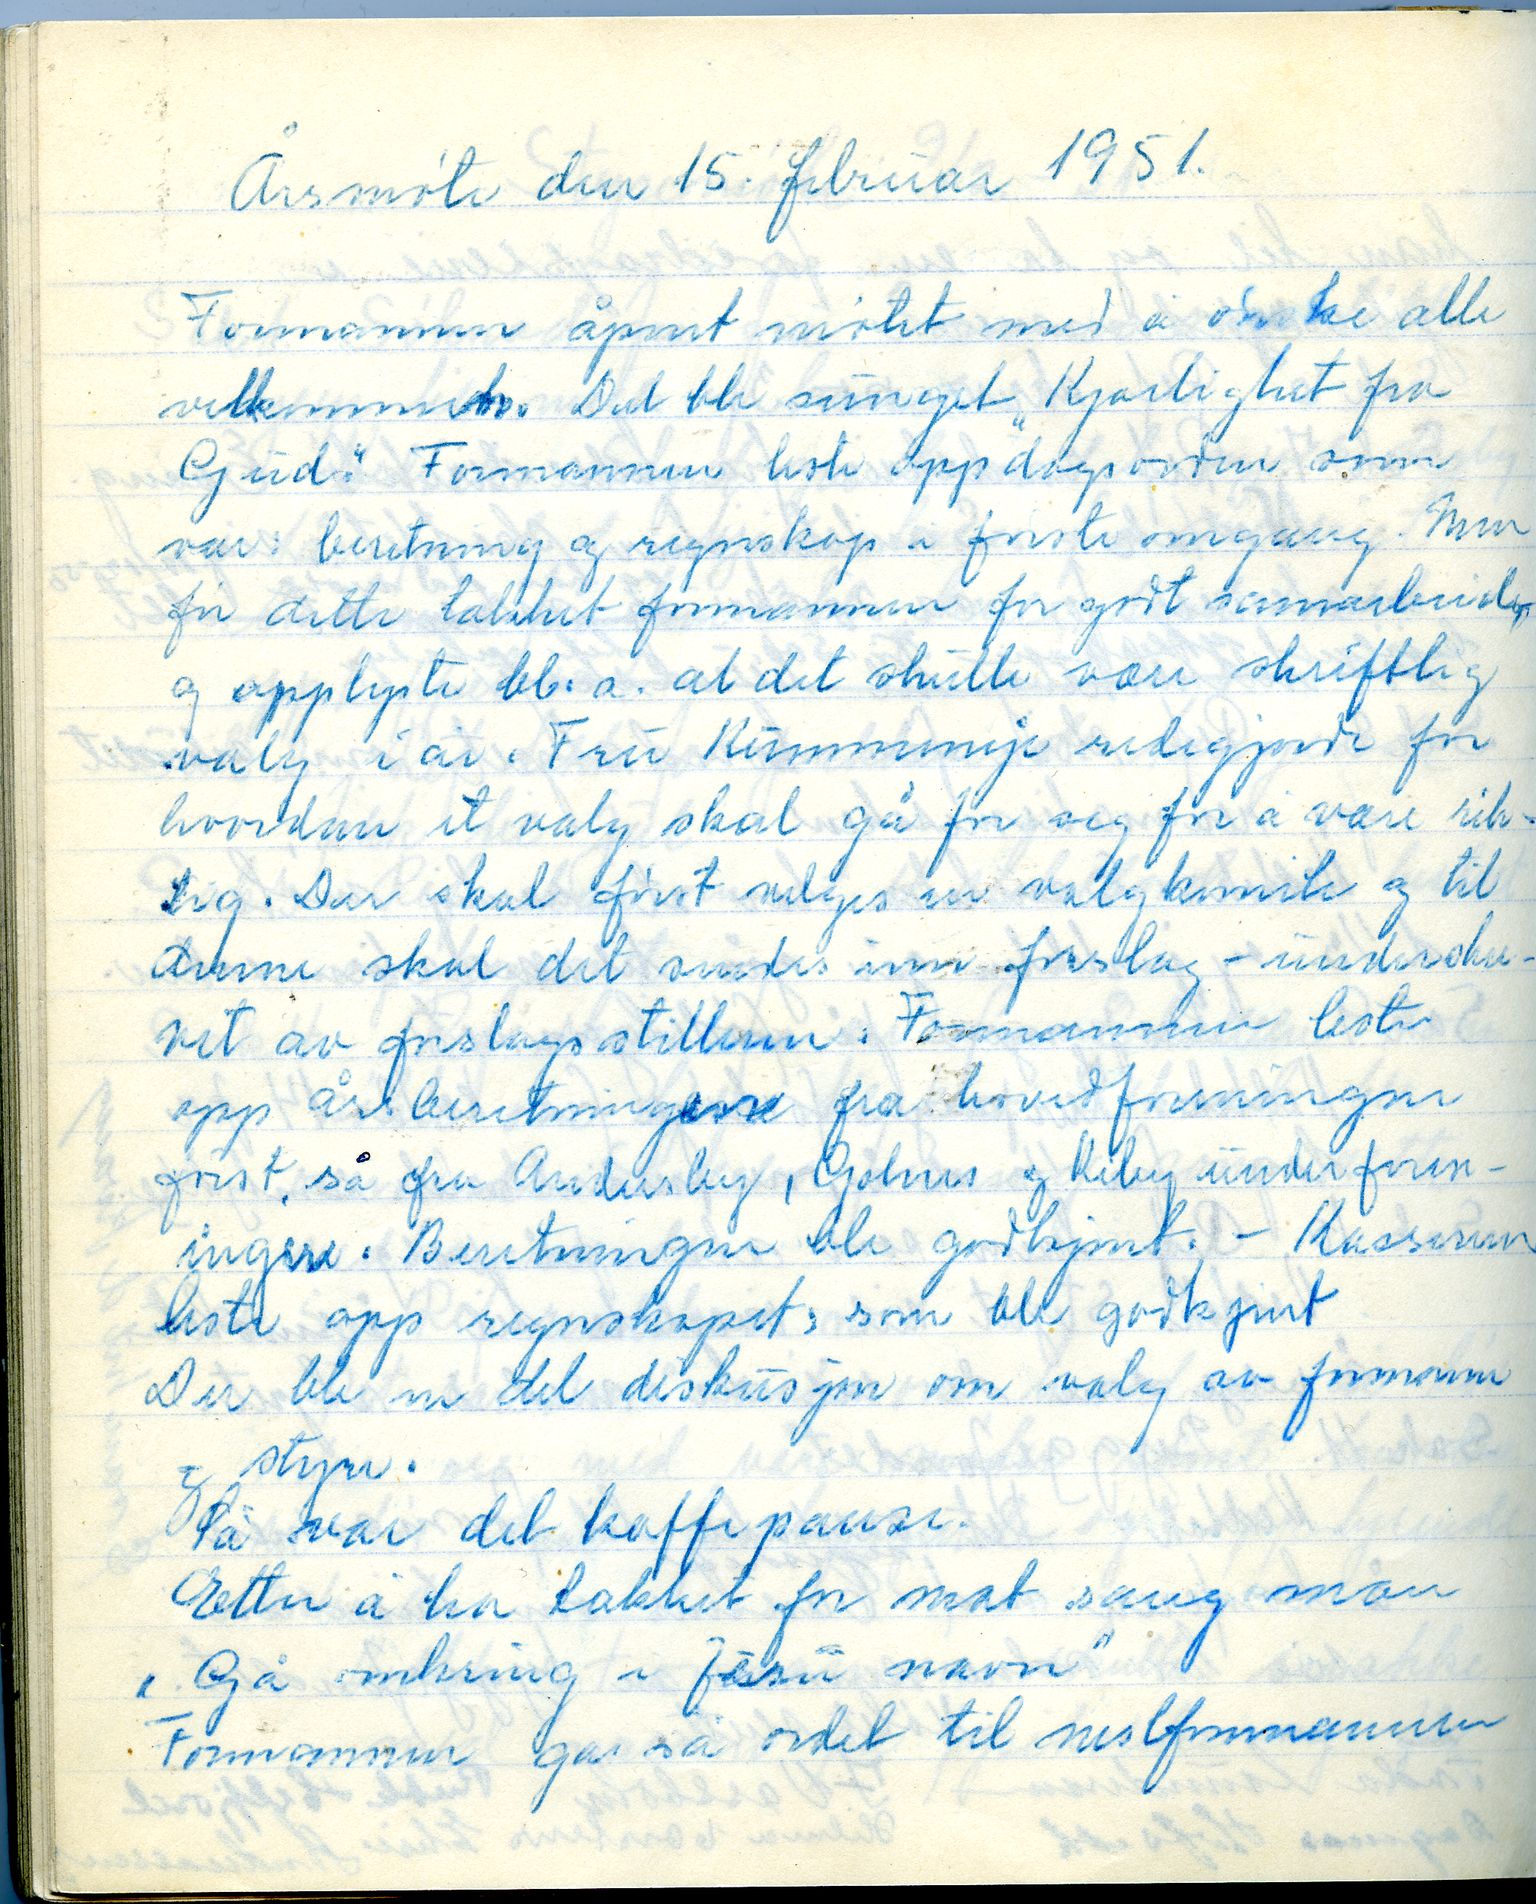 Årsmøte den 15. februar 1951.
Formannen åpnet møtet med å ønske alle
velkommen. Det ble sunget „Kjærlighet fra
Gud." Formannen leste opp dagsorden som
var: beretning og regnskap i første omgang. Men
før dette takket formannen for godt samarbeide,
og opplyste bl. a. at det skulle være skriftlig
valg i år. Fru Kummeneje redegjorde for
hvordan et valg skal gå for seg for å være rik-
tig. Der skal først velges en valgkomite og til
denne skal det sendes inn forslag - underskre-
vet av forslagsstilleren. Formannen leste
opp årsberetningene fra hovedforeningen
først, så fra Andersby, Golnes og Kiby underforen-
ingere. Beretningen ble godkjent. - Kassereren
leste opp regnskapet, som ble godkjent
Der ble en del diskusjon om valg av formann
og styre.
Så var det kaffepause.
Etter å ha takket for mat sang man
„Gå omkring i Jesu navn"
Formannen gav så ordet til nestformannen